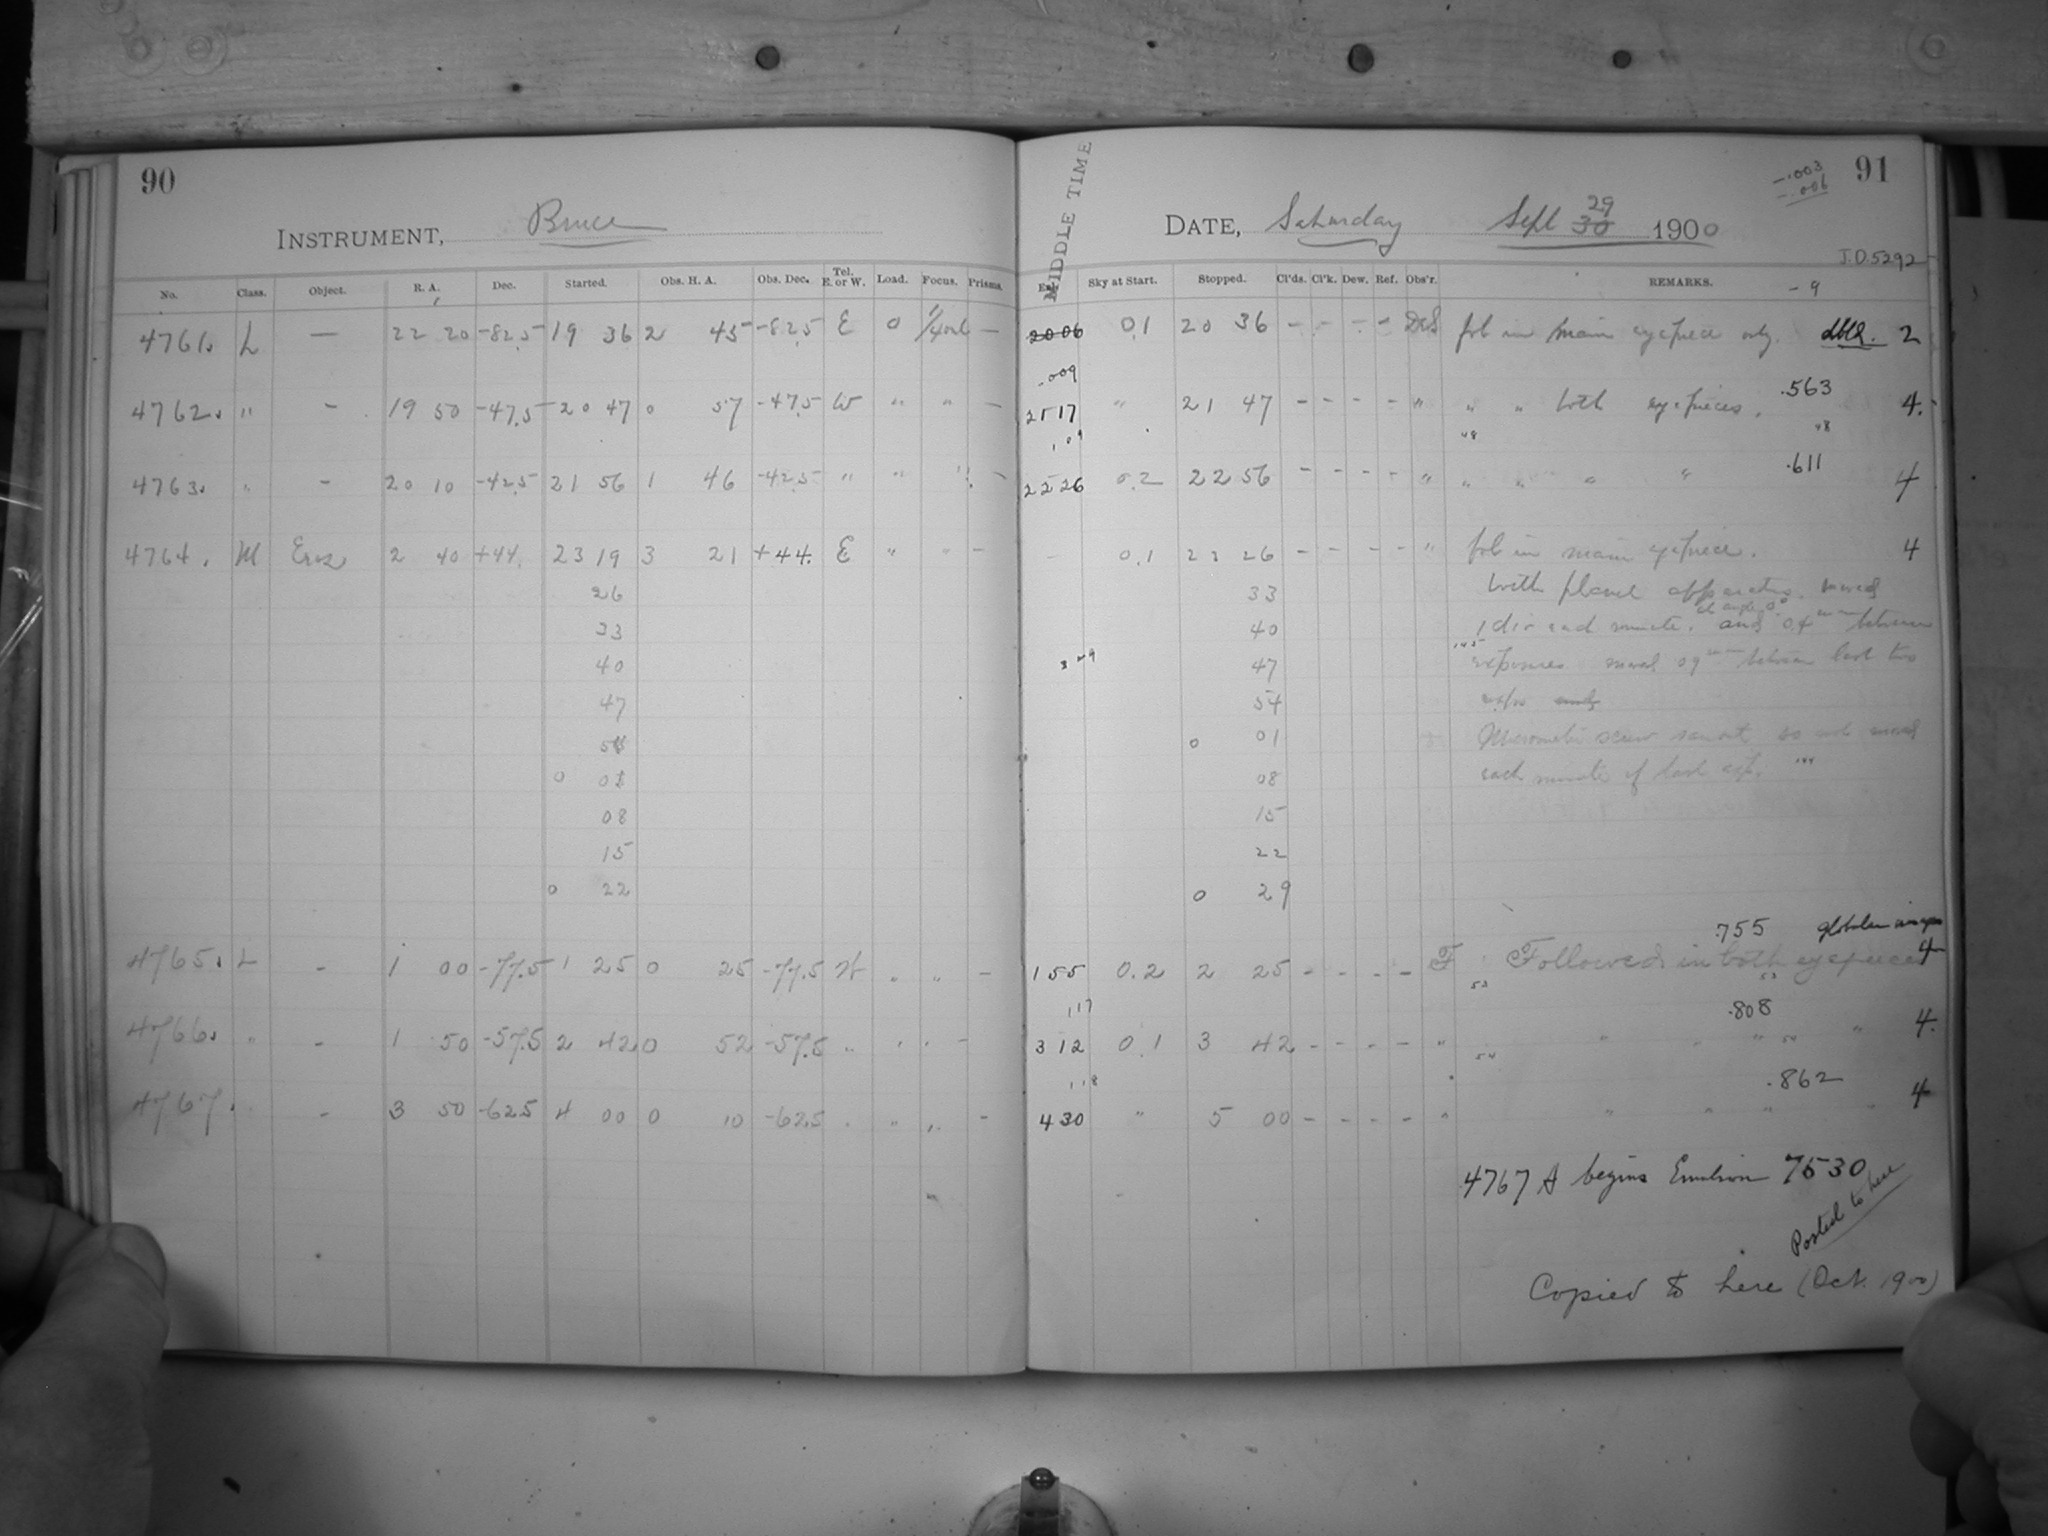 90
INSTRUMENT, Bruce
No. Class. Object. R. A. Dec. Started. Obs. H. A. Obs. Dec. Tel. E. or W. Load. Focus. Prisms.
4761. L — 22 20 -82.5 19 36 2 45 -82.5 E 0 —
4762. " - 19 50 -47.5 20 47 0 57 -47.5 W " " —
4763. " - 20 10 -42.5 21 56 1 46 -42.5 " " " -
4764. M Eros 2 40 +44. 23 19 3 21 +44. E " " -
26
33
40
47
54
0 01
08
15
0 22
4765. L - 1 00 -77.5 1 25 0 25 -77.5 W " " -
4766. " - 1 50 -57.5 2 42 0 52 -57.5 " " " -
4767. - 3 50 -62.5 4 00 0 10 -62.5 " " " -
91
-.003
-.006
MIDDLE TIME
DATE, Saturday Sept 29 30 1900
J.D. 5292
Sky at Start. Stopped. Cl'ds. Cl'k. Dew. Ref. Obs'r. REMARKS. -9
20 06 0.1 20 36 - - - - fol in main eyepiece only. dbld. 2
.009
21 17 " 21 47 - - - - " " " both eyepieces. .563 4.
48 48
22 26 0.2 22 56 - - - - " " " " " .611 4
- 0.1 23 26 - - - - " fol in main eyepiece. 4
33 with planet apparatus. moved
40 1 div each minute. and 0.4 between
47 exposures moved 0.9 between last two
54
0 01 Micrometer screw ran out so not moved
08 each minute of last exp.
15
22
0 29
.755
1 55 0.2 2 25 - - - - F Followed in both eyepieces 4
53 53
117 .808
3 12 0.1 3 42 - - - - " " " " " 4.
54 54
118 .862
4 30 " 5 00 - - - - " " " " " 4
4767 A begins Emulsion 7530
Posted to here
Copied to here (Oct. 1900)